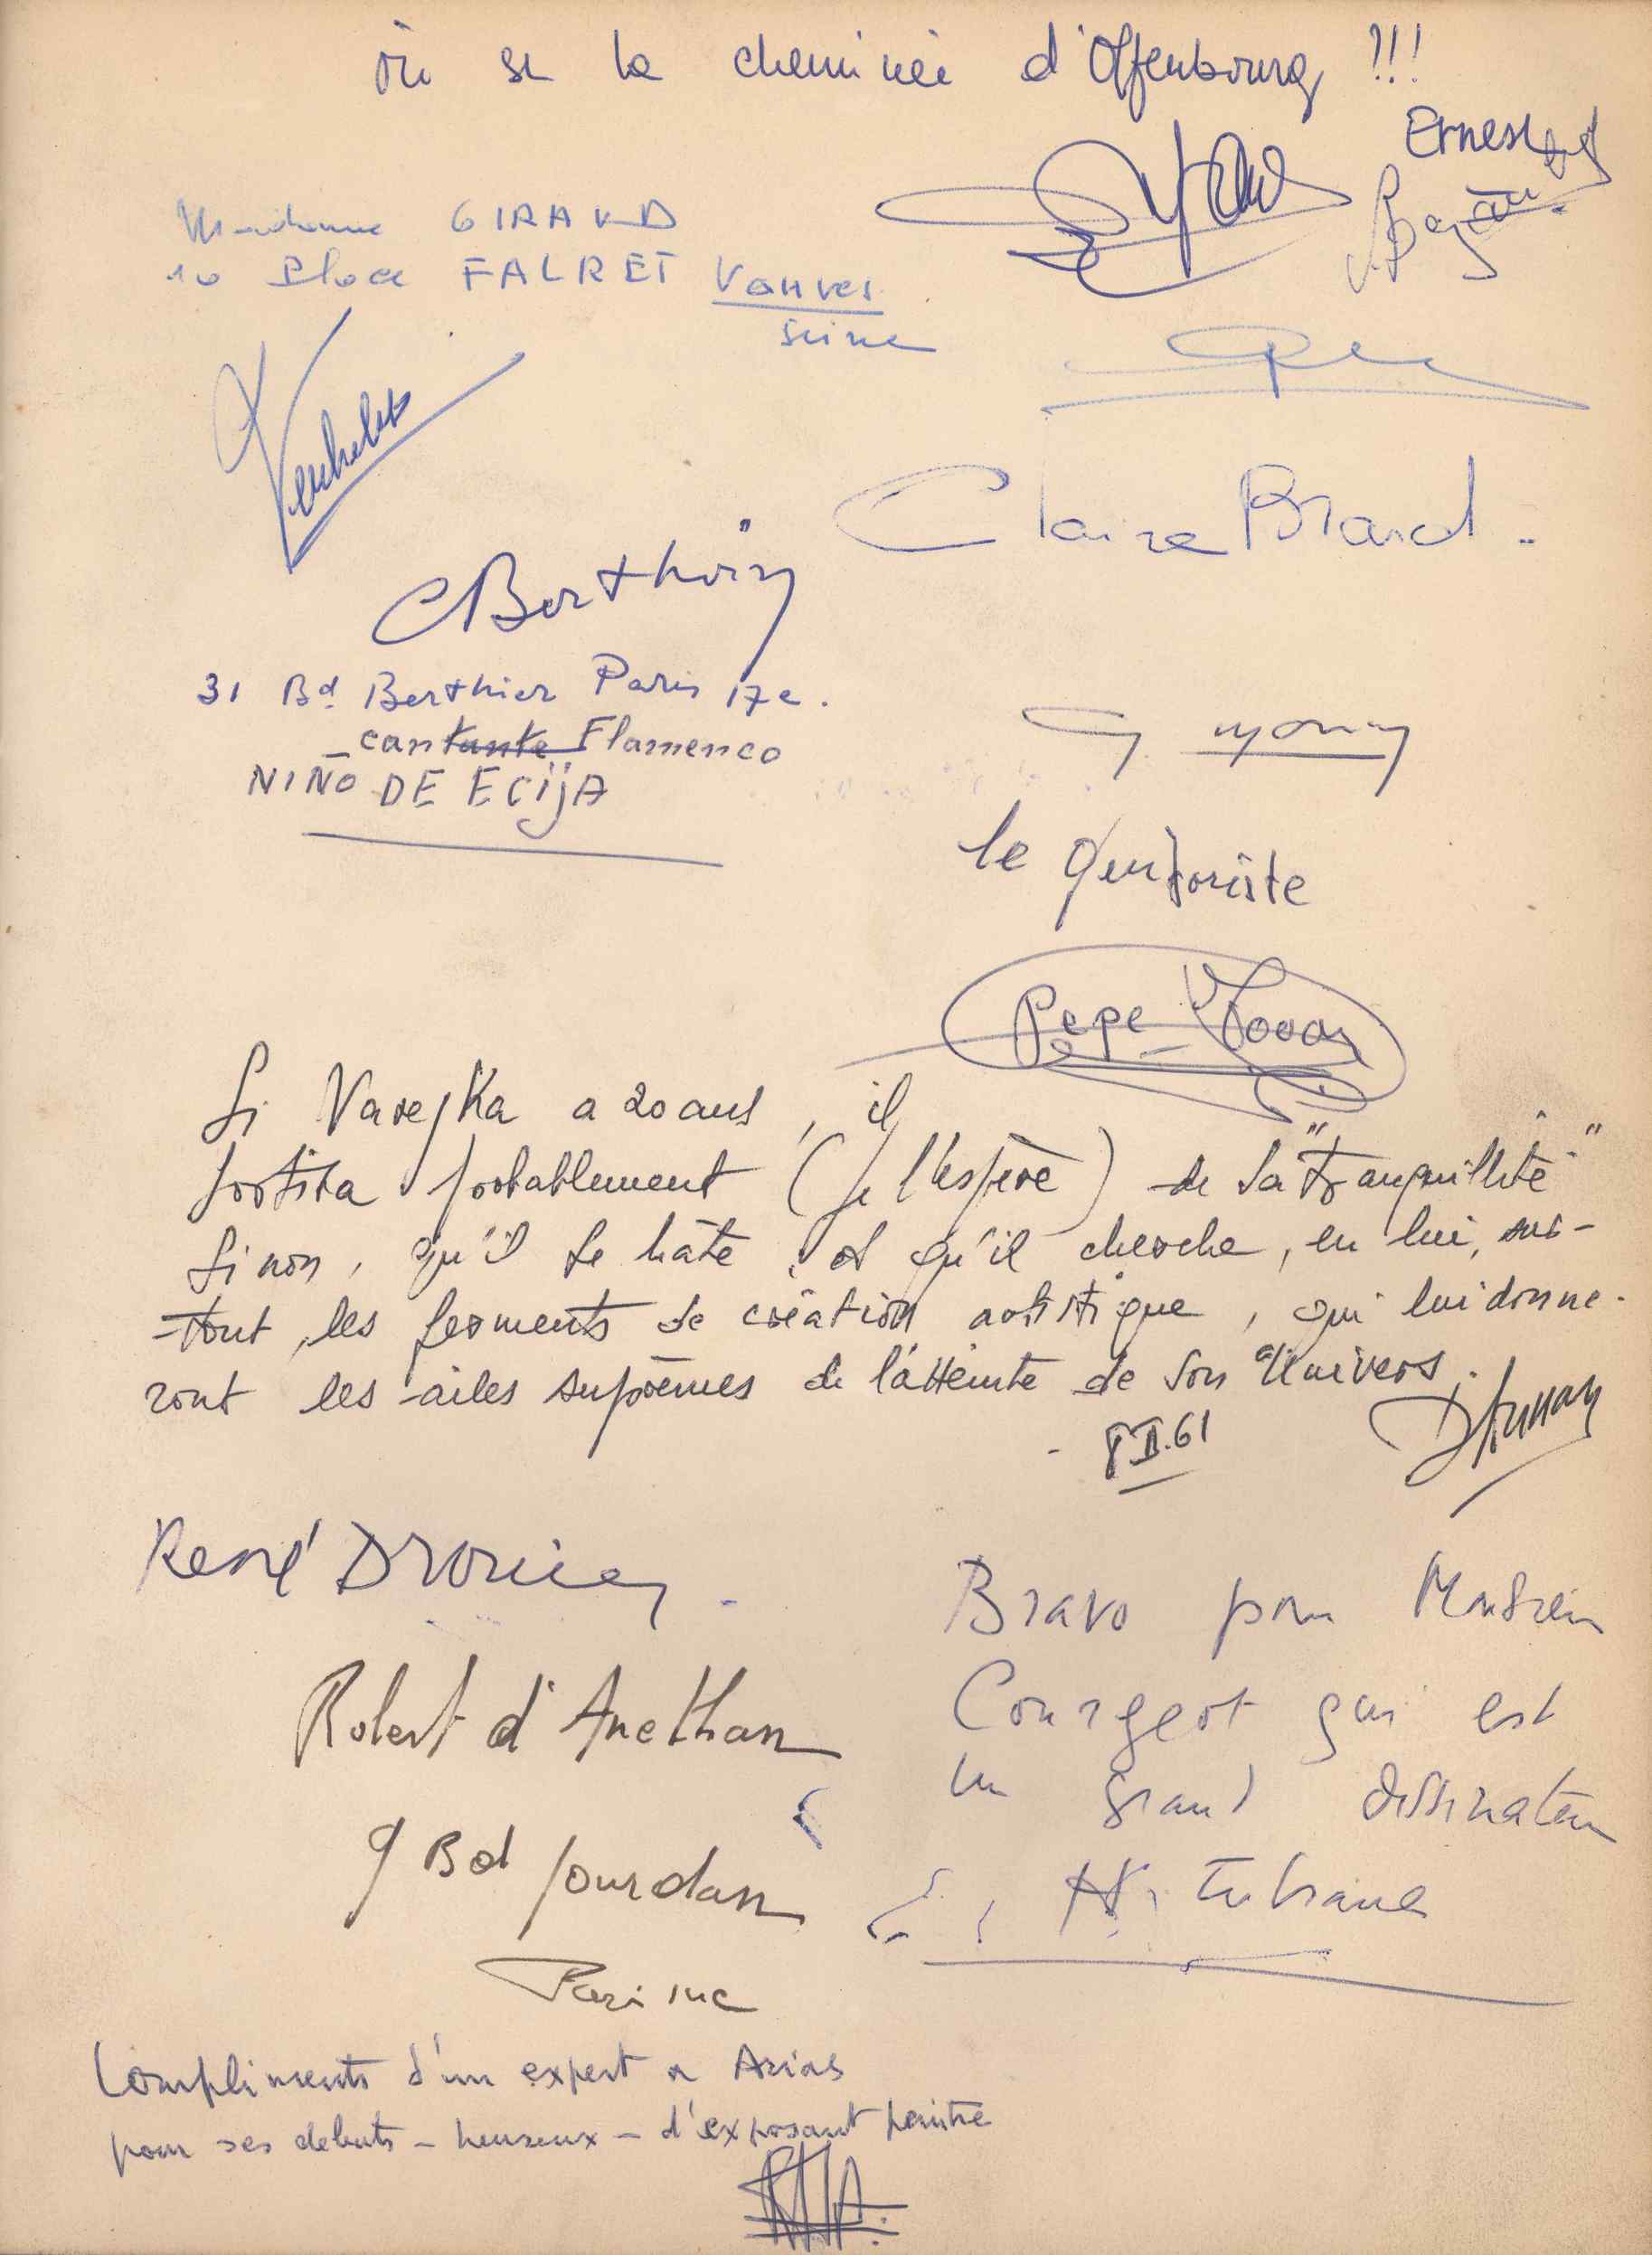 ou se la cheminée d'Offenbourg !!!
Ernest
Madame GIRAUD
10 Place FALRET Vanves
Seine
Claire Brard.
C Berthoin
31 Bd. Berthier Paris 17e.
cantante Flamenco
NIÑO DE ECIJA
le guitariste
Pepe Tovar
Si Varejka a 20 ans, il
sortira probablement (je l'espère) de sa "tranquillité"
Sinon, qu'il se hâte, et qu'il cherche, en lui, sur-
-tout, les ferments de création artistique, qui lui donne-
ront les ailes suprêmes de l'atteinte de son Univers.
8 II.61
René Drouin.
Robert d'Anethan
9 Bd Jourdan
Paris
Bravo pour Monsieur
Courgeot qui est
un grand dessinateur
Compliments d'un expert a Arias
pour ses debuts - heureux - d'exposant peintre